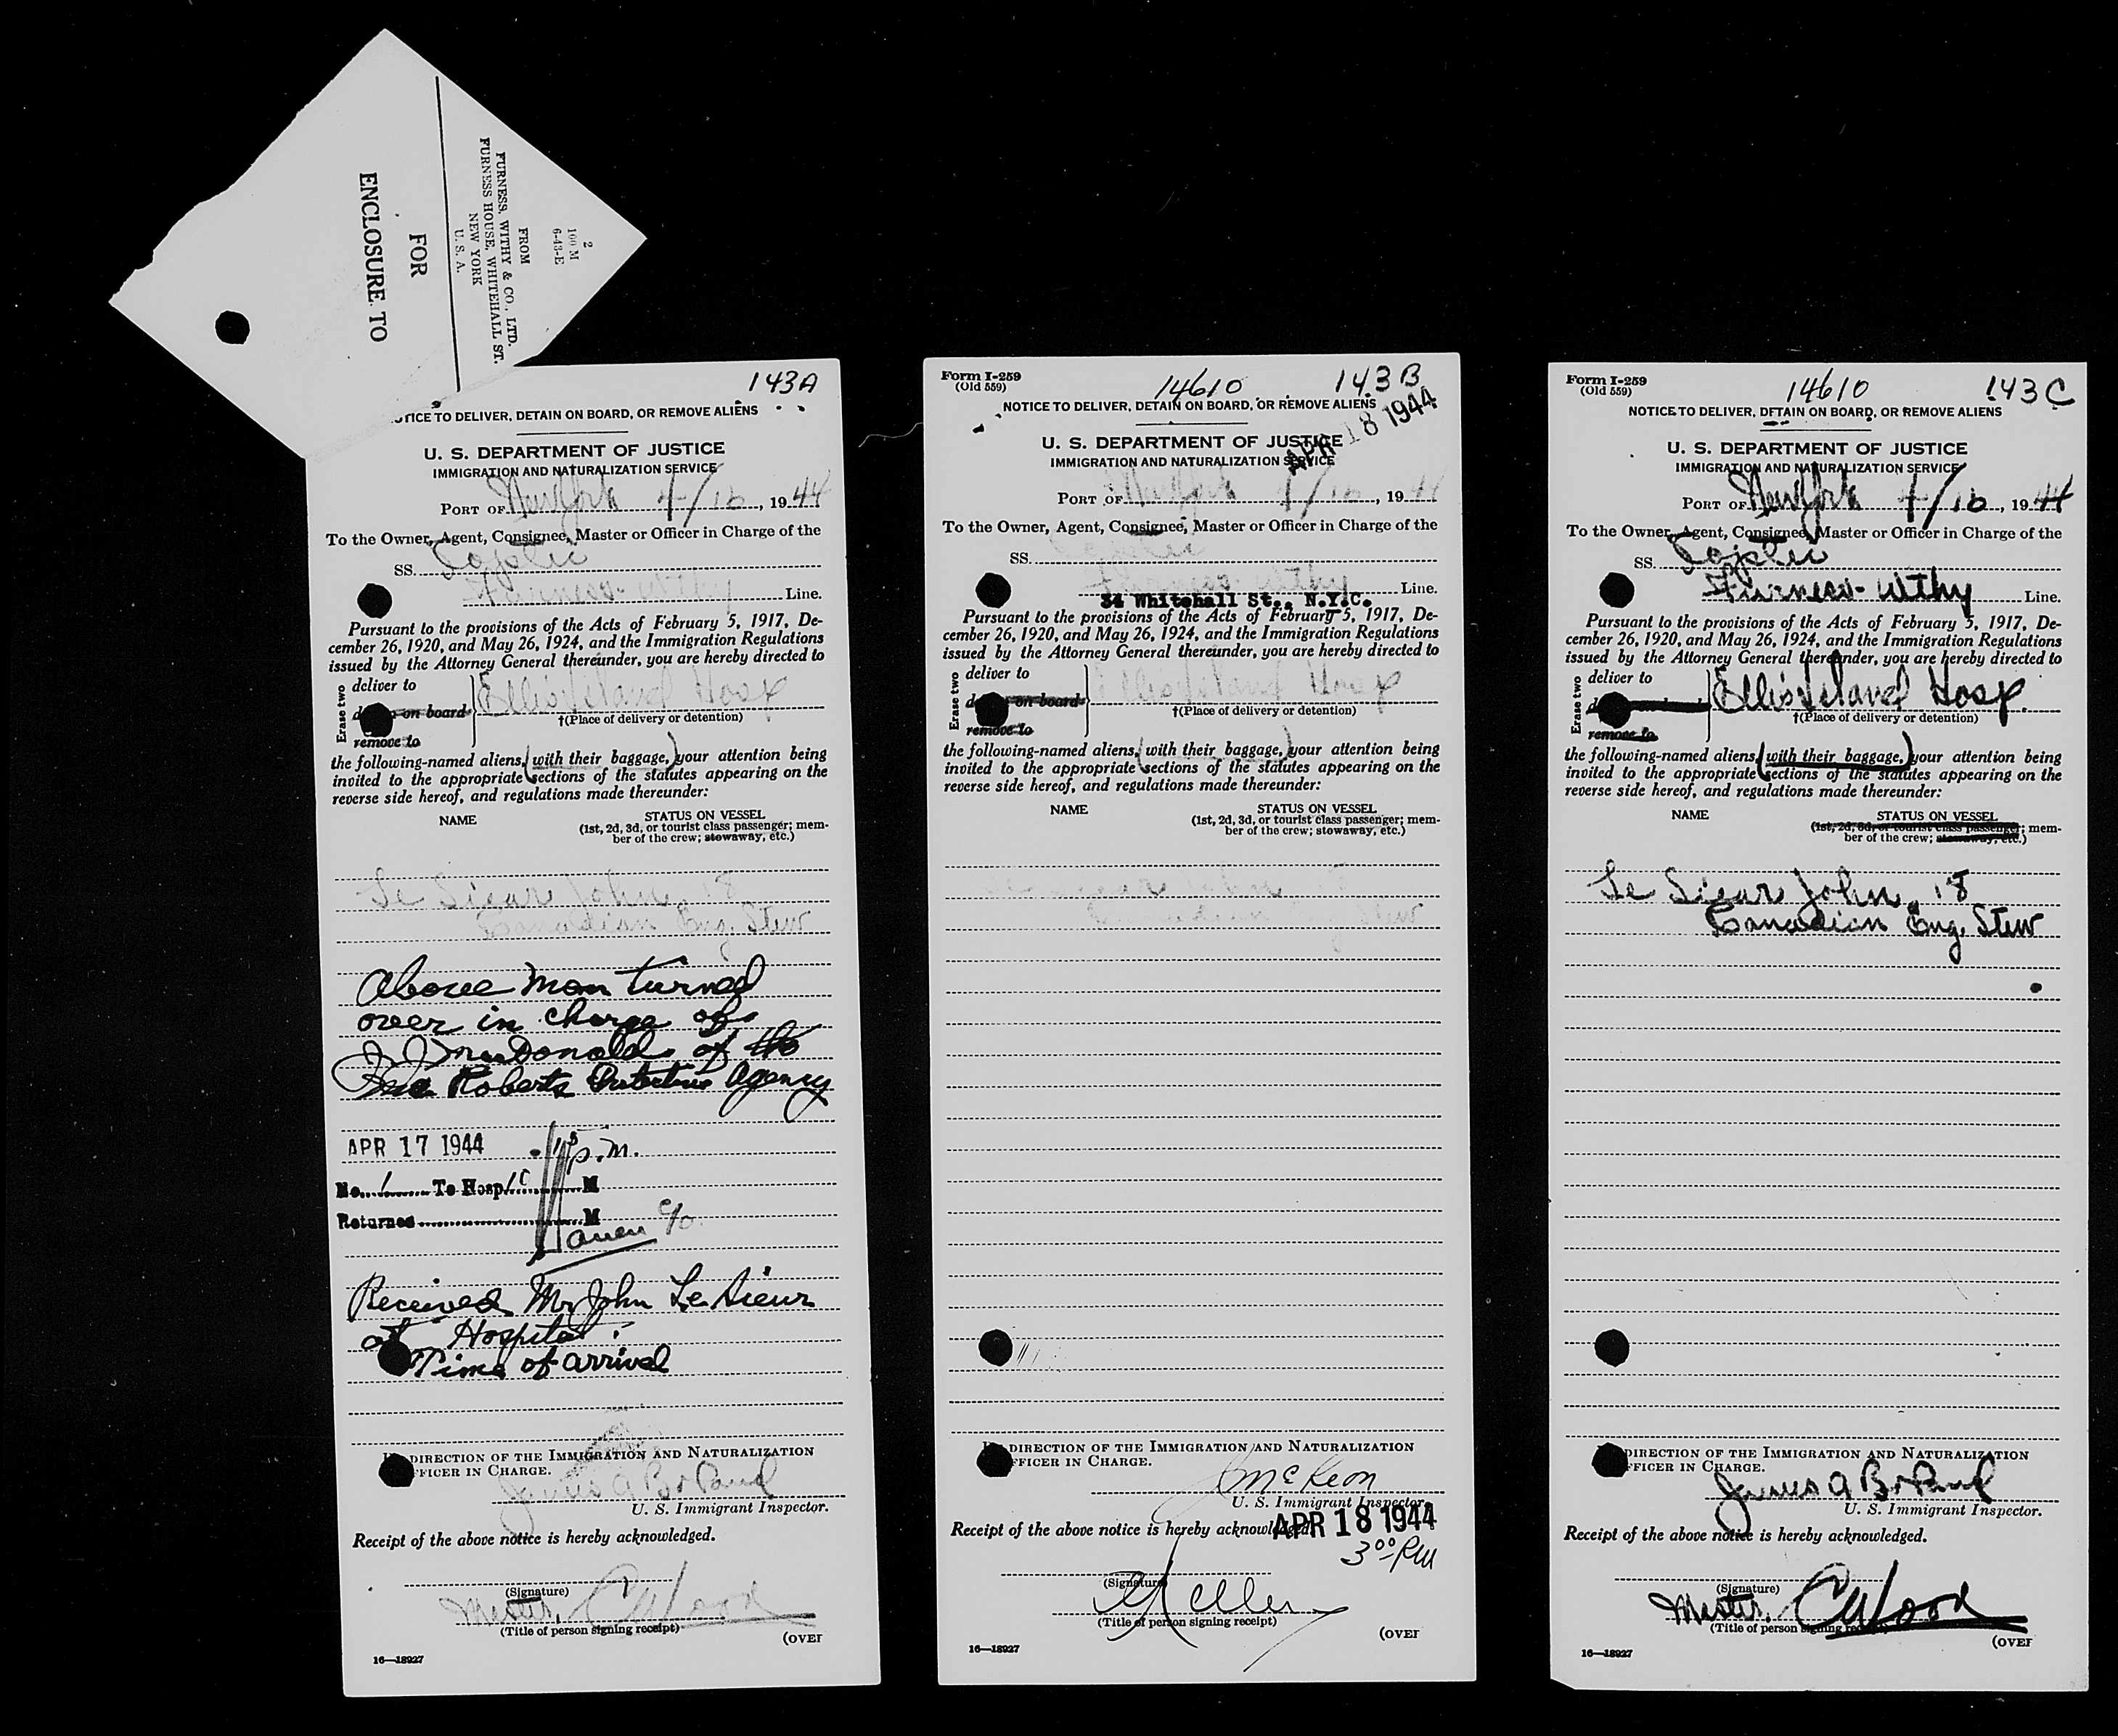 2
100 M
6-43-E
FROM
FURNESS, WITHY & CO., LTD.
FURNESS HOUSE, WHITEHALL ST.
NEW YORK
U. S. A.
FOR
ENCLOSURE TO
143A
NOTICE TO DELIVER, DETAIN ON BOARD, OR REMOVE ALIENS
U. S. DEPARTMENT OF JUSTICE
IMMIGRATION AND NATURALIZATION SERVICE
PORT OF New York 4/16, 1944
To the Owner, Agent, Consignee, Master or Officer in Charge of the
SS. Coptic
Furness-Withy Line.
Pursuant to the provisions of the Acts of February 5, 1917, De-
cember 26, 1920, and May 26, 1924, and the Immigration Regulations
issued by the Attorney General thereunder, you are hereby directed to
Erase two
deliver to
on board
remove to
Ellis Island Hosp
†(Place of delivery or detention)
the following-named aliens, (with their baggage,) your attention being
invited to the appropriate sections of the statutes appearing on the
reverse side hereof, and regulations made thereunder:
NAME
STATUS ON VESSEL
(1st, 2d, 3d, or tourist class passenger; mem-
ber of the crew; stowaway, etc.)
Le Sieur John, 18
Canadian Eng. Stew
Above man turned
over in charge of
J J MacDonald of the
Roberts Detective Agency
APR 17 1944 p.m.
No. 1 To Hosp M
Returned M
Received Mr John Le Sieur
at Hospital:
Time of arrival
DIRECTION OF THE IMMIGRATION AND NATURALIZATION
OFFICER IN CHARGE.
James A Boland
U. S. Immigrant Inspector.
Receipt of the above notice is hereby acknowledged.
(Signature)
Master, C Wood
(Title of person signing receipt)
(OVER
16—18927
Form I-259
(Old 559)
14610
143B
NOTICE TO DELIVER, DETAIN ON BOARD, OR REMOVE ALIENS
APR 18 1944
U. S. DEPARTMENT OF JUSTICE
IMMIGRATION AND NATURALIZATION SERVICE
PORT OF New York 4/16, 1944
To the Owner, Agent, Consignee, Master or Officer in Charge of the
SS. Coptic
Furness-Withy Line.
34 Whitehall St., N.Y.C.
Pursuant to the provisions of the Acts of February 5, 1917, De-
cember 26, 1920, and May 26, 1924, and the Immigration Regulations
issued by the Attorney General thereunder, you are hereby directed to
Erase two
deliver to
on board
remove to
Ellis Island Hosp
†(Place of delivery or detention)
the following-named aliens, (with their baggage,) your attention being
invited to the appropriate sections of the statutes appearing on the
reverse side hereof, and regulations made thereunder:
NAME
STATUS ON VESSEL
(1st, 2d, 3d, or tourist class passenger; mem-
ber of the crew; stowaway, etc.)
Le Sieur John 18
Canadian Eng Stew
DIRECTION OF THE IMMIGRATION AND NATURALIZATION
OFFICER IN CHARGE.
J McKeon
U. S. Immigrant Inspector.
Receipt of the above notice is hereby acknowledged.
APR 18 1944
3 00 PM
(Signature)
(Title of person signing receipt)
(OVER
16—18927
Form I-259
(Old 559)
14610
143C
NOTICE TO DELIVER, DETAIN ON BOARD, OR REMOVE ALIENS
U. S. DEPARTMENT OF JUSTICE
IMMIGRATION AND NATURALIZATION SERVICE
PORT OF New York 4/16, 1944
To the Owner, Agent, Consignee, Master or Officer in Charge of the
SS. Coptic
Furness-Withy Line.
Pursuant to the provisions of the Acts of February 5, 1917, De-
cember 26, 1920, and May 26, 1924, and the Immigration Regulations
issued by the Attorney General thereunder, you are hereby directed to
Erase two
deliver to
remove to
Ellis Island Hosp.
†(Place of delivery or detention)
the following-named aliens, (with their baggage,) your attention being
invited to the appropriate sections of the statutes appearing on the
reverse side hereof, and regulations made thereunder:
NAME
STATUS ON VESSEL
(1st, 2d, 3d, or tourist class passenger; mem-
ber of the crew; stowaway, etc.)
Le Sieur John, 18
Canadian Eng. Stew
DIRECTION OF THE IMMIGRATION AND NATURALIZATION
OFFICER IN CHARGE.
James A Boland
U. S. Immigrant Inspector.
Receipt of the above notice is hereby acknowledged.
(Signature)
Master, C Wood
(Title of person signing receipt)
(OVER
16—18927